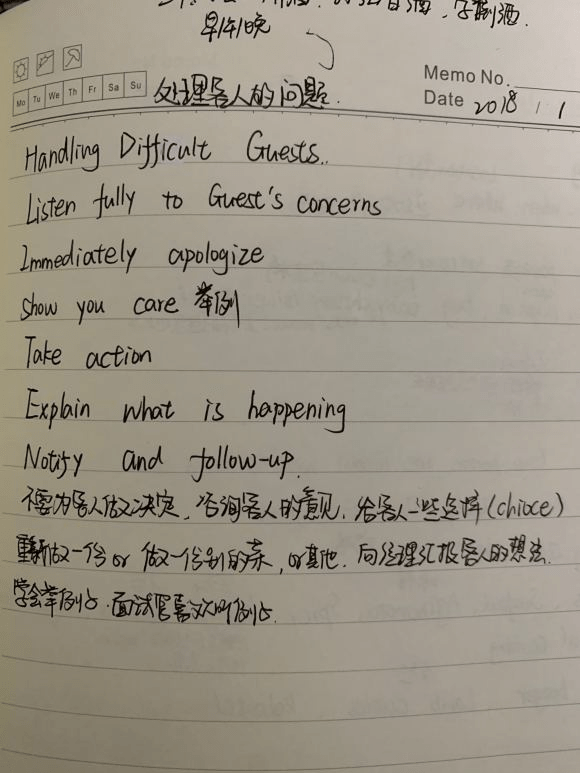 白酒,
早/午/晚
Mo Tu We Th Fr Sa Su
处理客人的问题.
Memo No.
Date 2018 / 1
Handling Difficult Guests..
Listen fully to Guest's concerns
Immediately apologize
show you care 举例
Take action
Explain what is happening
Notify and follow-up.
不要为客人做决定, 咨询客人的意见, 给客人一些选择(chioce)
重新做一份 or 做一份别的菜, or其他. 向经理汇报客人的想法.
学会举例子. 面试官喜欢听例子.